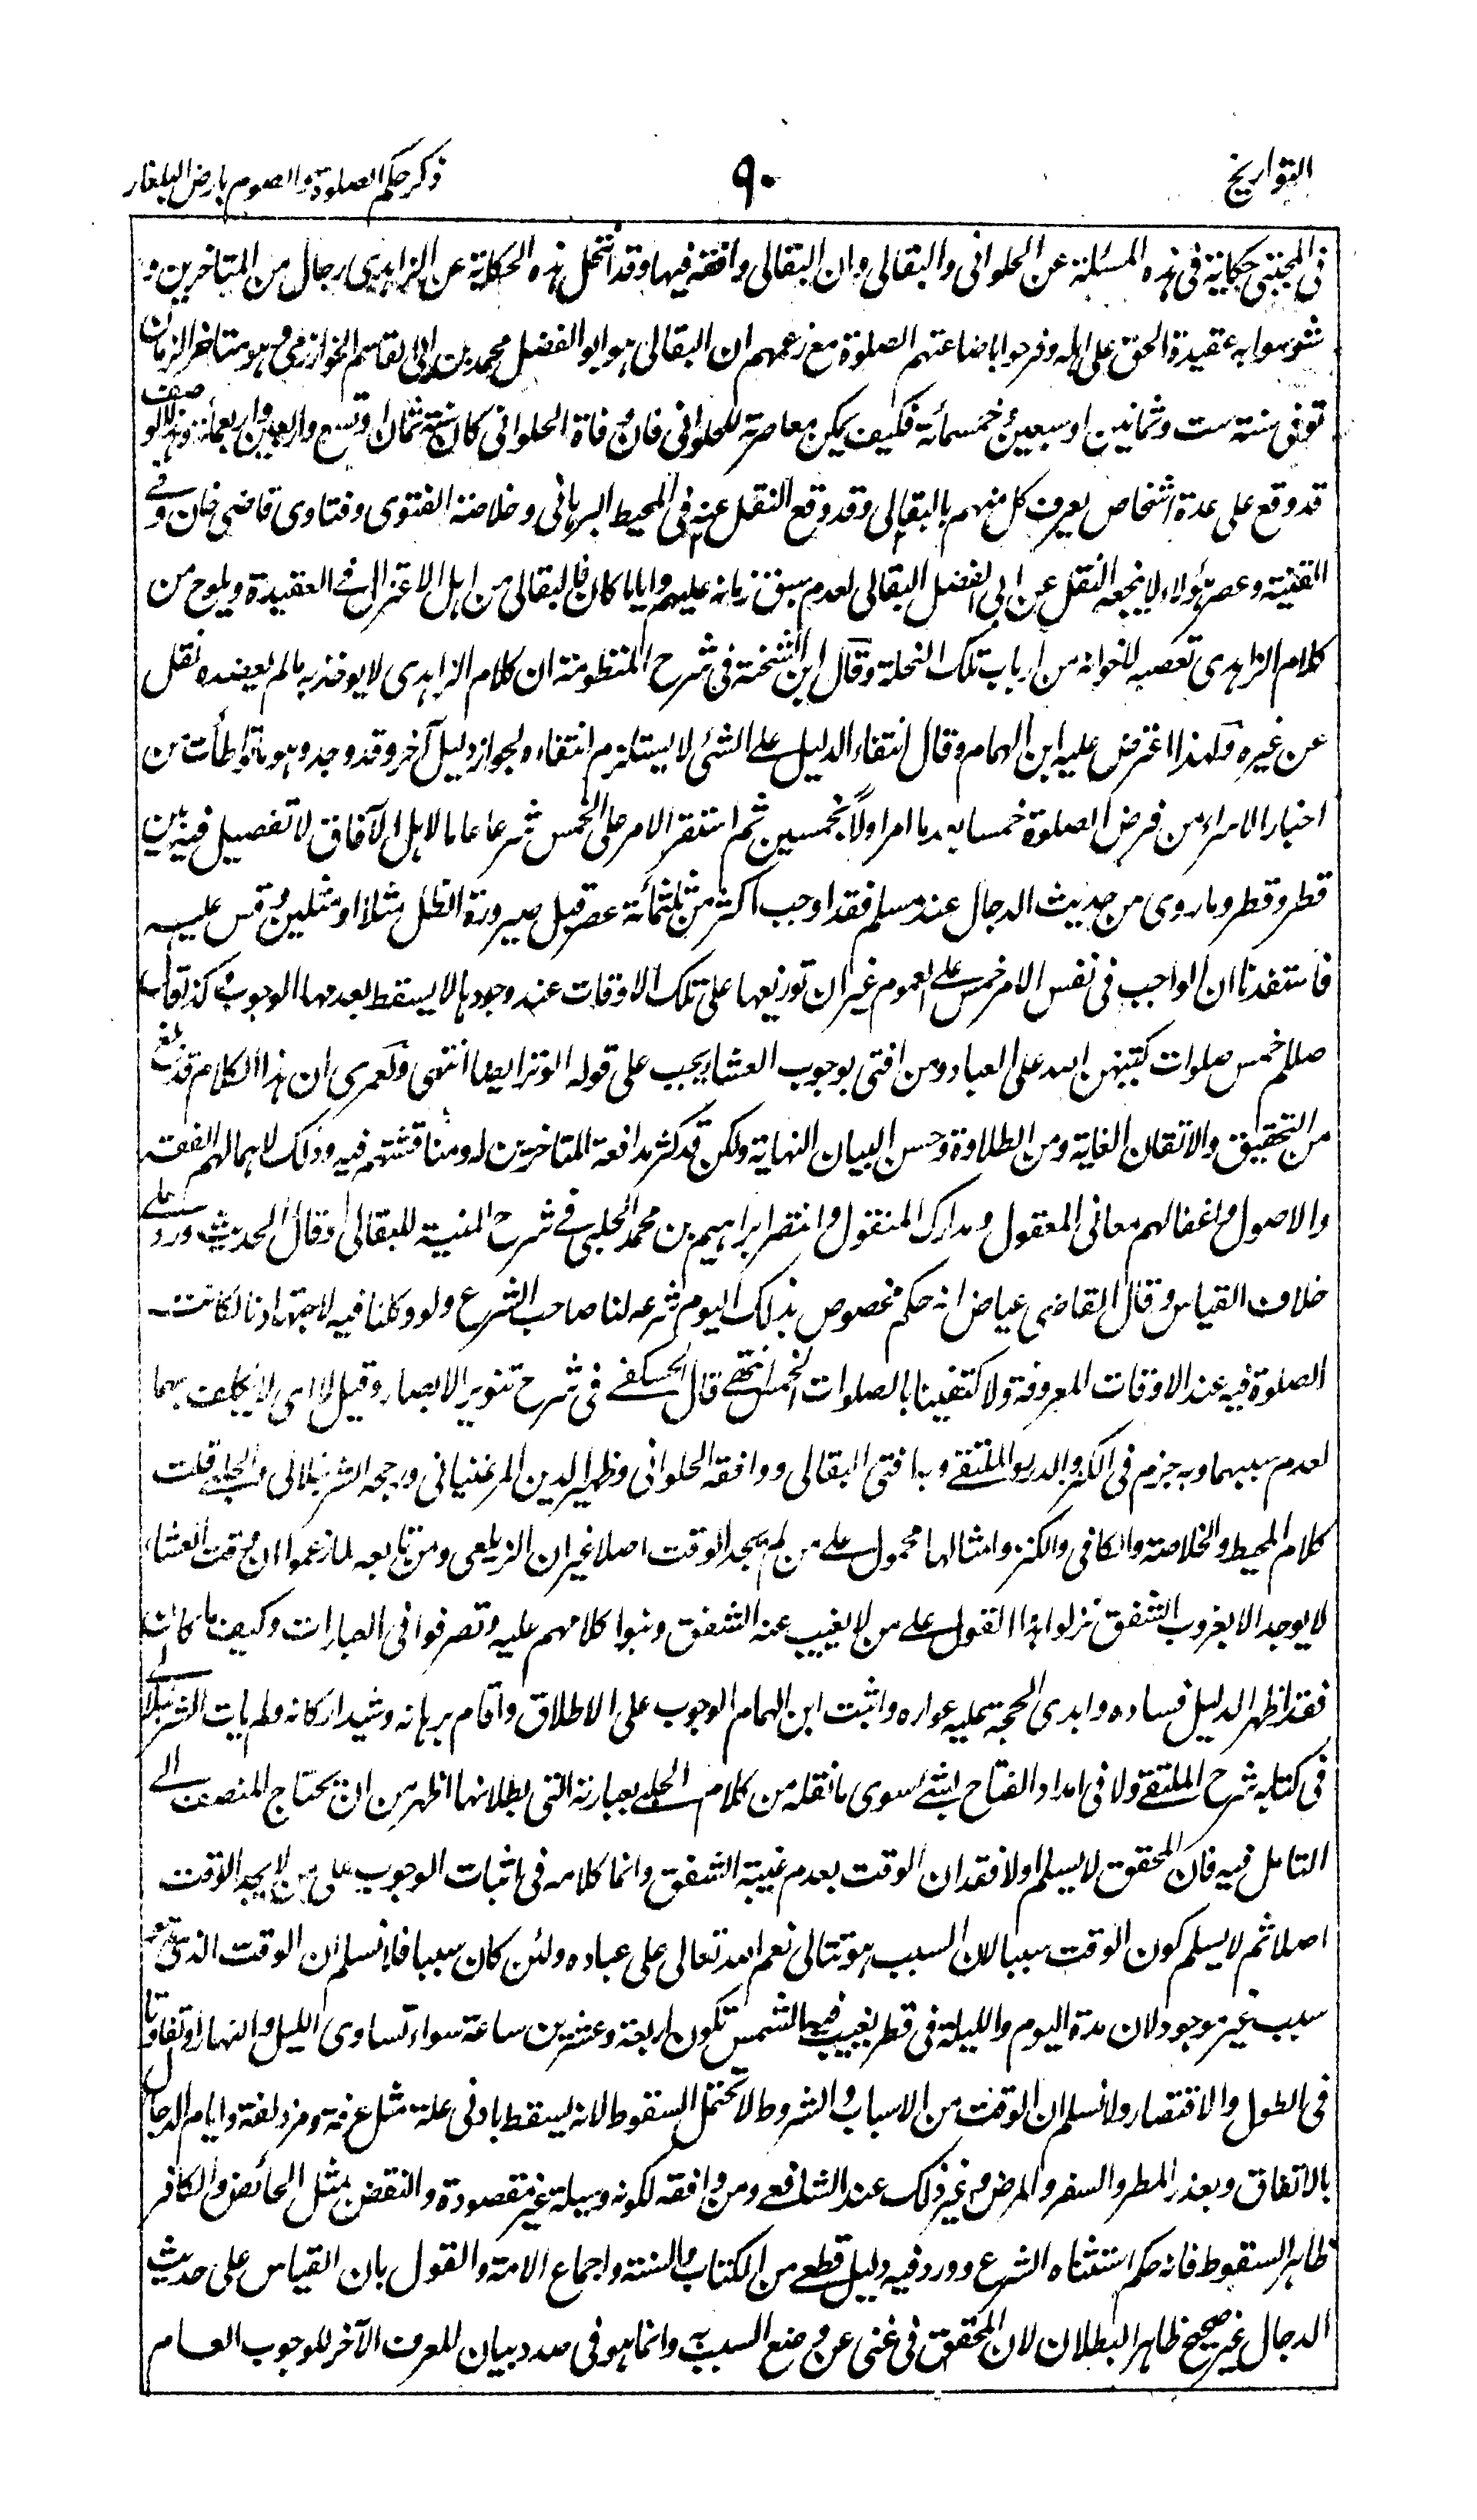 التواريخ
٩٠
ذكر حكم الصلوة والصوم بارض البلغار
فى المجتبى حكاية فى هذه المسئلة عن الحلوانى والبقالى وان البقالى وافقه فيها وقد انتحل هذه الحكاية عن الزاهدى رجال من المتاخرين و
شوهوا به عقيدة الحق على اهله وفرحوا باضاعتهم الصلوة مع زعمهم ان البقالى هو ابو الفضل محمد بن ابى القاسم الخوارزمى وهو متاخر الزمان
توفى سنة ست وثمانين او سبعين وخمسمائة فكيف يمكن معاصرته للحلوانى فان وفاة الحلوانى كان سنة ثمان او تسع واربعين واربعمائة وهذا الوصف
قد وقع على عدة اشخاص يعرف كل منهم بالبقالى وقد وقع النقل عنه فى المحيط البرهانى وخلاصة الفتوى وفتاوى قاضى خان وفى
القنية وعصر هؤلاء لا يجمعه النقل عن ابى الفضل البقالى لعدم سبق زمانه عليهم وايا ما كان فالبقالى من اهل الاعتزال فى العقيدة ويلوح من
كلام الزاهدى تعصبه لاخوانه من ارباب تلك النحلة وقال ابن الشحنة فى شرح المنظومة ان كلام الزاهدى لا يوخذ به ما لم يعضده نقل
عن غيره ولهذا اعترض عليه ابن الهمام وقال انتفاء الدليل على الشئ لا يستلزم انتفاءه لجواز دليل آخر وقد وجد وهو ما تواطأت من
اخبار الاسراء من فرض الصلوة خمسا بعد ما امر اولًا بخمسين ثم استقر الامر على الخمس شرعا عاما لاهل الآفاق لا تفصيل فيه بين
قطر وقطر وما روى من حديث الدجال عند مسلم فقد اوجب اكثر من ثلثمائة عصر قبل صيرورة الظل مثلا او مثلين وقس عليه
فاستفدنا ان الواجب فى نفس الامر خمس على العموم غير ان توزيعها على تلك الاوقات عند وجودها لا يسقط بعدمها الوجوب وكذا قال
صللم خمس صلوات كتبهن الله على العباد ومن افتى بوجوب العشاء يجب على قوله الوتر ايضا انتهى ولعمرى ان هذا الكلام قد بلغ
من التحقيق والاتقان الغاية ومن الطلاوة وحسن البيان النهاية ولكن قد كثر مدافعة المتاخرين له ومناقشتهم فيه وذلك لاهمالهم الفقه
والاصول واغفالهم معانى المعقول ومدارك المنقول وانتصر ابراهيم بن محمد الحلبى فى شرح المنية للبقالى وقال الحديث ورد على
خلاف القياس وقال القاضى عياض انه حكم مخصوص بذلك اليوم شرعه لنا صاحب الشرع ولو وكلنا فيه لاجتهادنا لكانت
الصلوة فيه عند الاوقات المعروفة ولاكتفينا بالصلوات الخمس انتهى قال الحصكفى فى شرح تنوير الابصار وقيل لا اى لا يكلف بهما
لعدم سببهما وبه جزم فى الكنز والدرر والملتقى وبه افتى البقالى ووافقه الحلوانى وظهير الدين المرغينانى ورجحه الشرنبلالى والحلبى قلت
كلام المحيط والخلاصة والكافى والكنز وامثالها محمول على من لم يجد الوقت اصلا غير ان الزيلعى ومن تابعه لما زعموا ان وقت العشاء
لا يوجد الا بغروب الشفق نزلوا هذا القول على من لا يغيب عنه الشفق وبنوا كلامهم عليه وتصرفوا فى العبارات وكيف ما كان
فقد اظهر الدليل فساده وابدى الحجة عليه عواره واثبت ابن الهمام الوجوب على الاطلاق واقام برهانه وشيد اركانه ولم يات الشرنبلالى
فى كتابه شرح الملتقى ولا فى امداد الفتاح بشئ سوى ما نقله من كلام الحلبى بعبارته التى بطلانها اظهر من ان يحتاج المنصف الى
التامل فيه فان المحقق لا يسلم اولا فقدان الوقت بعدم غيبة الشفق وانما كلامه فى اثبات الوجوب على من لا يجد الوقت
اصلا ثم لا يسلم كون الوقت سببا لان السبب هو تتالى نعم الله تعالى على عباده ولئن كان سببا فلا نسلم ان الوقت الذى هو
سبب غير موجود لان مدة اليوم والليلة فى قطر يغيب فيها الشمس تكون اربعة وعشرين ساعة سواء تساوى الليل والنهار او تفاوتا
فى الطول والاقتصار ولا نسلم ان الوقت من الاسباب والشروط لا تحتمل السقوط لانه يسقط بادنى علة مثل عرفة ومزدلفة وايام الدجال
بالاتفاق وبعذر المطر والسفر والمرض وغير ذلك عند الشافعى ومن وافقه لكونه وسيلة غير مقصودة والنقض بمثل الحائض والكافر
ظاهر السقوط فانه حكم استثناه الشرع وورد فيه دليل قطعى من الكتاب والسنة واجماع الامة والقول بان القياس على حديث
الدجال غير صحيح ظاهر البطلان لان المحقق فى غنى عن وضع السبب وانما هو فى صدد بيان المعرف الآخر للوجوب العام